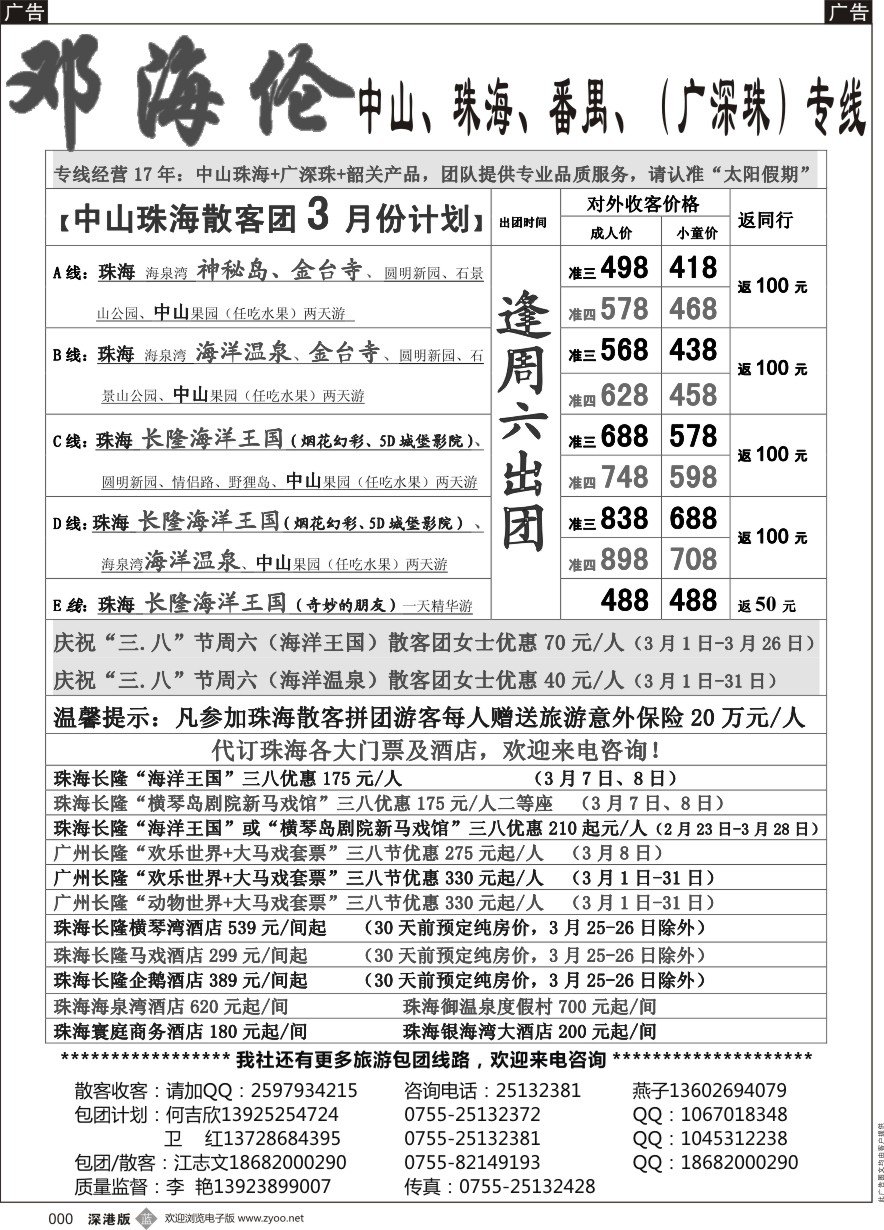 广告
广告
邓海伦 中山、珠海、番禺、（广深珠）专线
专线经营17年：中山珠海+广深珠+韶关产品，团队提供专业品质服务，请认准“太阳假期”
【中山珠海散客团3月份计划】 出团时间 对外收客价格 返同行
成人价 小童价
A线：珠海 海泉湾 神秘岛、金台寺、圆明新园、石景
山公园、中山果园（任吃水果）两天游
准三498 418
准四578 468
返100元
B线：珠海 海泉湾 海洋温泉、金台寺、圆明新园、石
景山公园、中山果园（任吃水果）两天游
准三568 438
准四628 458
返100元
C线：珠海 长隆海洋王国（烟花幻彩、5D城堡影院）、
圆明新园、情侣路、野狸岛、中山果园（任吃水果）两天游
准三688 578
准四748 598
返100元
D线：珠海 长隆海洋王国（烟花幻彩、5D城堡影院）、
海泉湾海洋温泉、中山果园（任吃水果）两天游
准三838 688
准四898 708
返100元
E线：珠海 长隆海洋王国（奇妙的朋友）一天精华游
488 488
返50元
逢周六出团
庆祝“三.八”节周六（海洋王国）散客团女士优惠70元/人（3月1日-3月26日）
庆祝“三.八”节周六（海洋温泉）散客团女士优惠40元/人（3月1日-31日）
温馨提示：凡参加珠海散客拼团游客每人赠送旅游意外保险20万元/人
代订珠海各大门票及酒店，欢迎来电咨询！
珠海长隆“海洋王国”三八优惠175元/人 （3月7日、8日）
珠海长隆“横琴岛剧院新马戏馆”三八优惠175元/人二等座 （3月7日、8日）
珠海长隆“海洋王国”或“横琴岛剧院新马戏馆”三八优惠210起元/人（2月23日-3月28日）
广州长隆“欢乐世界+大马戏套票”三八节优惠275元起/人 （3月8日）
广州长隆“欢乐世界+大马戏套票”三八节优惠330元起/人 （3月1日-31日）
广州长隆“动物世界+大马戏套票”三八节优惠330元起/人 （3月1日-31日）
珠海长隆横琴湾酒店539元/间起 （30天前预定纯房价，3月25-26日除外）
珠海长隆马戏酒店299元/间起 （30天前预定纯房价，3月25-26日除外）
珠海长隆企鹅酒店389元/间起 （30天前预定纯房价，3月25-26日除外）
珠海海泉湾酒店620元起/间 珠海御温泉度假村700元起/间
珠海寰庭商务酒店180元起/间 珠海银海湾大酒店200元起/间
***************** 我社还有更多旅游包团线路，欢迎来电咨询 ********************
散客收客：请加QQ：2597934215 咨询电话：25132381 燕子13602694079
包团计划：何吉欣13925254724 0755-25132372 QQ：1067018348
卫 红13728684395 0755-25132381 QQ：1045312238
包团/散客：江志文18682000290 0755-82149193 QQ：18682000290
质量监督：李 艳13923899007 传真：0755-25132428
此广告图文均由客户提供
000 深港版 蓝 欢迎浏览电子版 www.zyoo.net